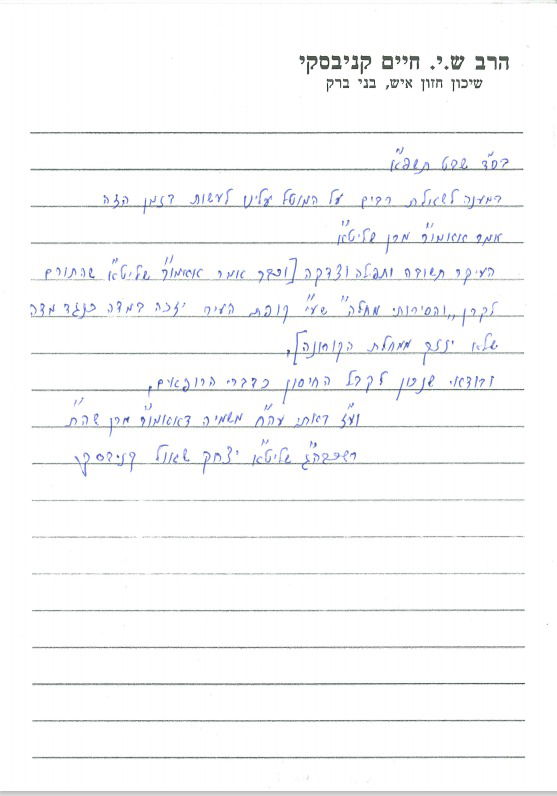 הרב ש.י. חיים קניבסקי
שיכון חזון איש, בני ברק
בס"ד שבט תשפ"א
במענה לשאלת רבים על המוטל עלינו לעשות בזמן הזה
אמר אאמו"ר מרן שליט"א
העיקר תשובה ותפילה וצדקה [וכבר אמר אאמו"ר שליט"א שהתורם
לקרן "והסירותי מחלה" שע"י קופת העיר יזכה במדה כנגד מדה
שלא יוזק ממחלת הקורונה],
ובודאי שנכון לקבל החיסון כדברי הרופאים,
וע"ז באתי עה"ח משמיה דאאמו"ר מרן שה"ת
רשכבה"ג שליט"א יצחק שאול קניבסקי